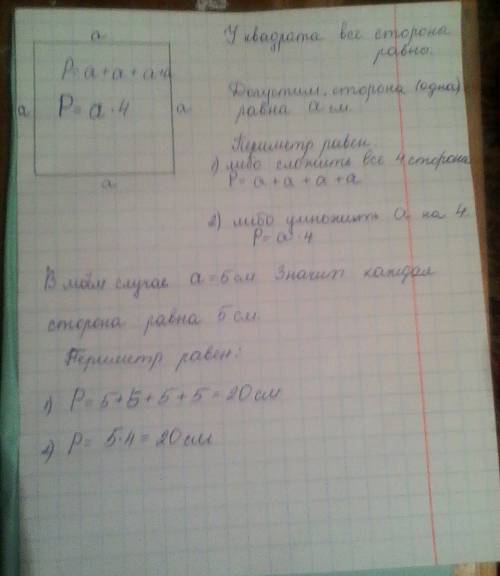 a
P=a+a+a+a
P=a·4
a
a
a
У квадрата все сторона
равны.
Допустим, сторона (одна)
равна a см.
Периметр равен.
1) либо сложить все 4 сторона
P=a+a+a+a
2) либо умножить a на 4.
P=a·4
В моём случае a=5см Значит каждая
сторона равна 5см.
Периметр равен:
1) P=5+5+5+5=20см
2) P=5·4=20см